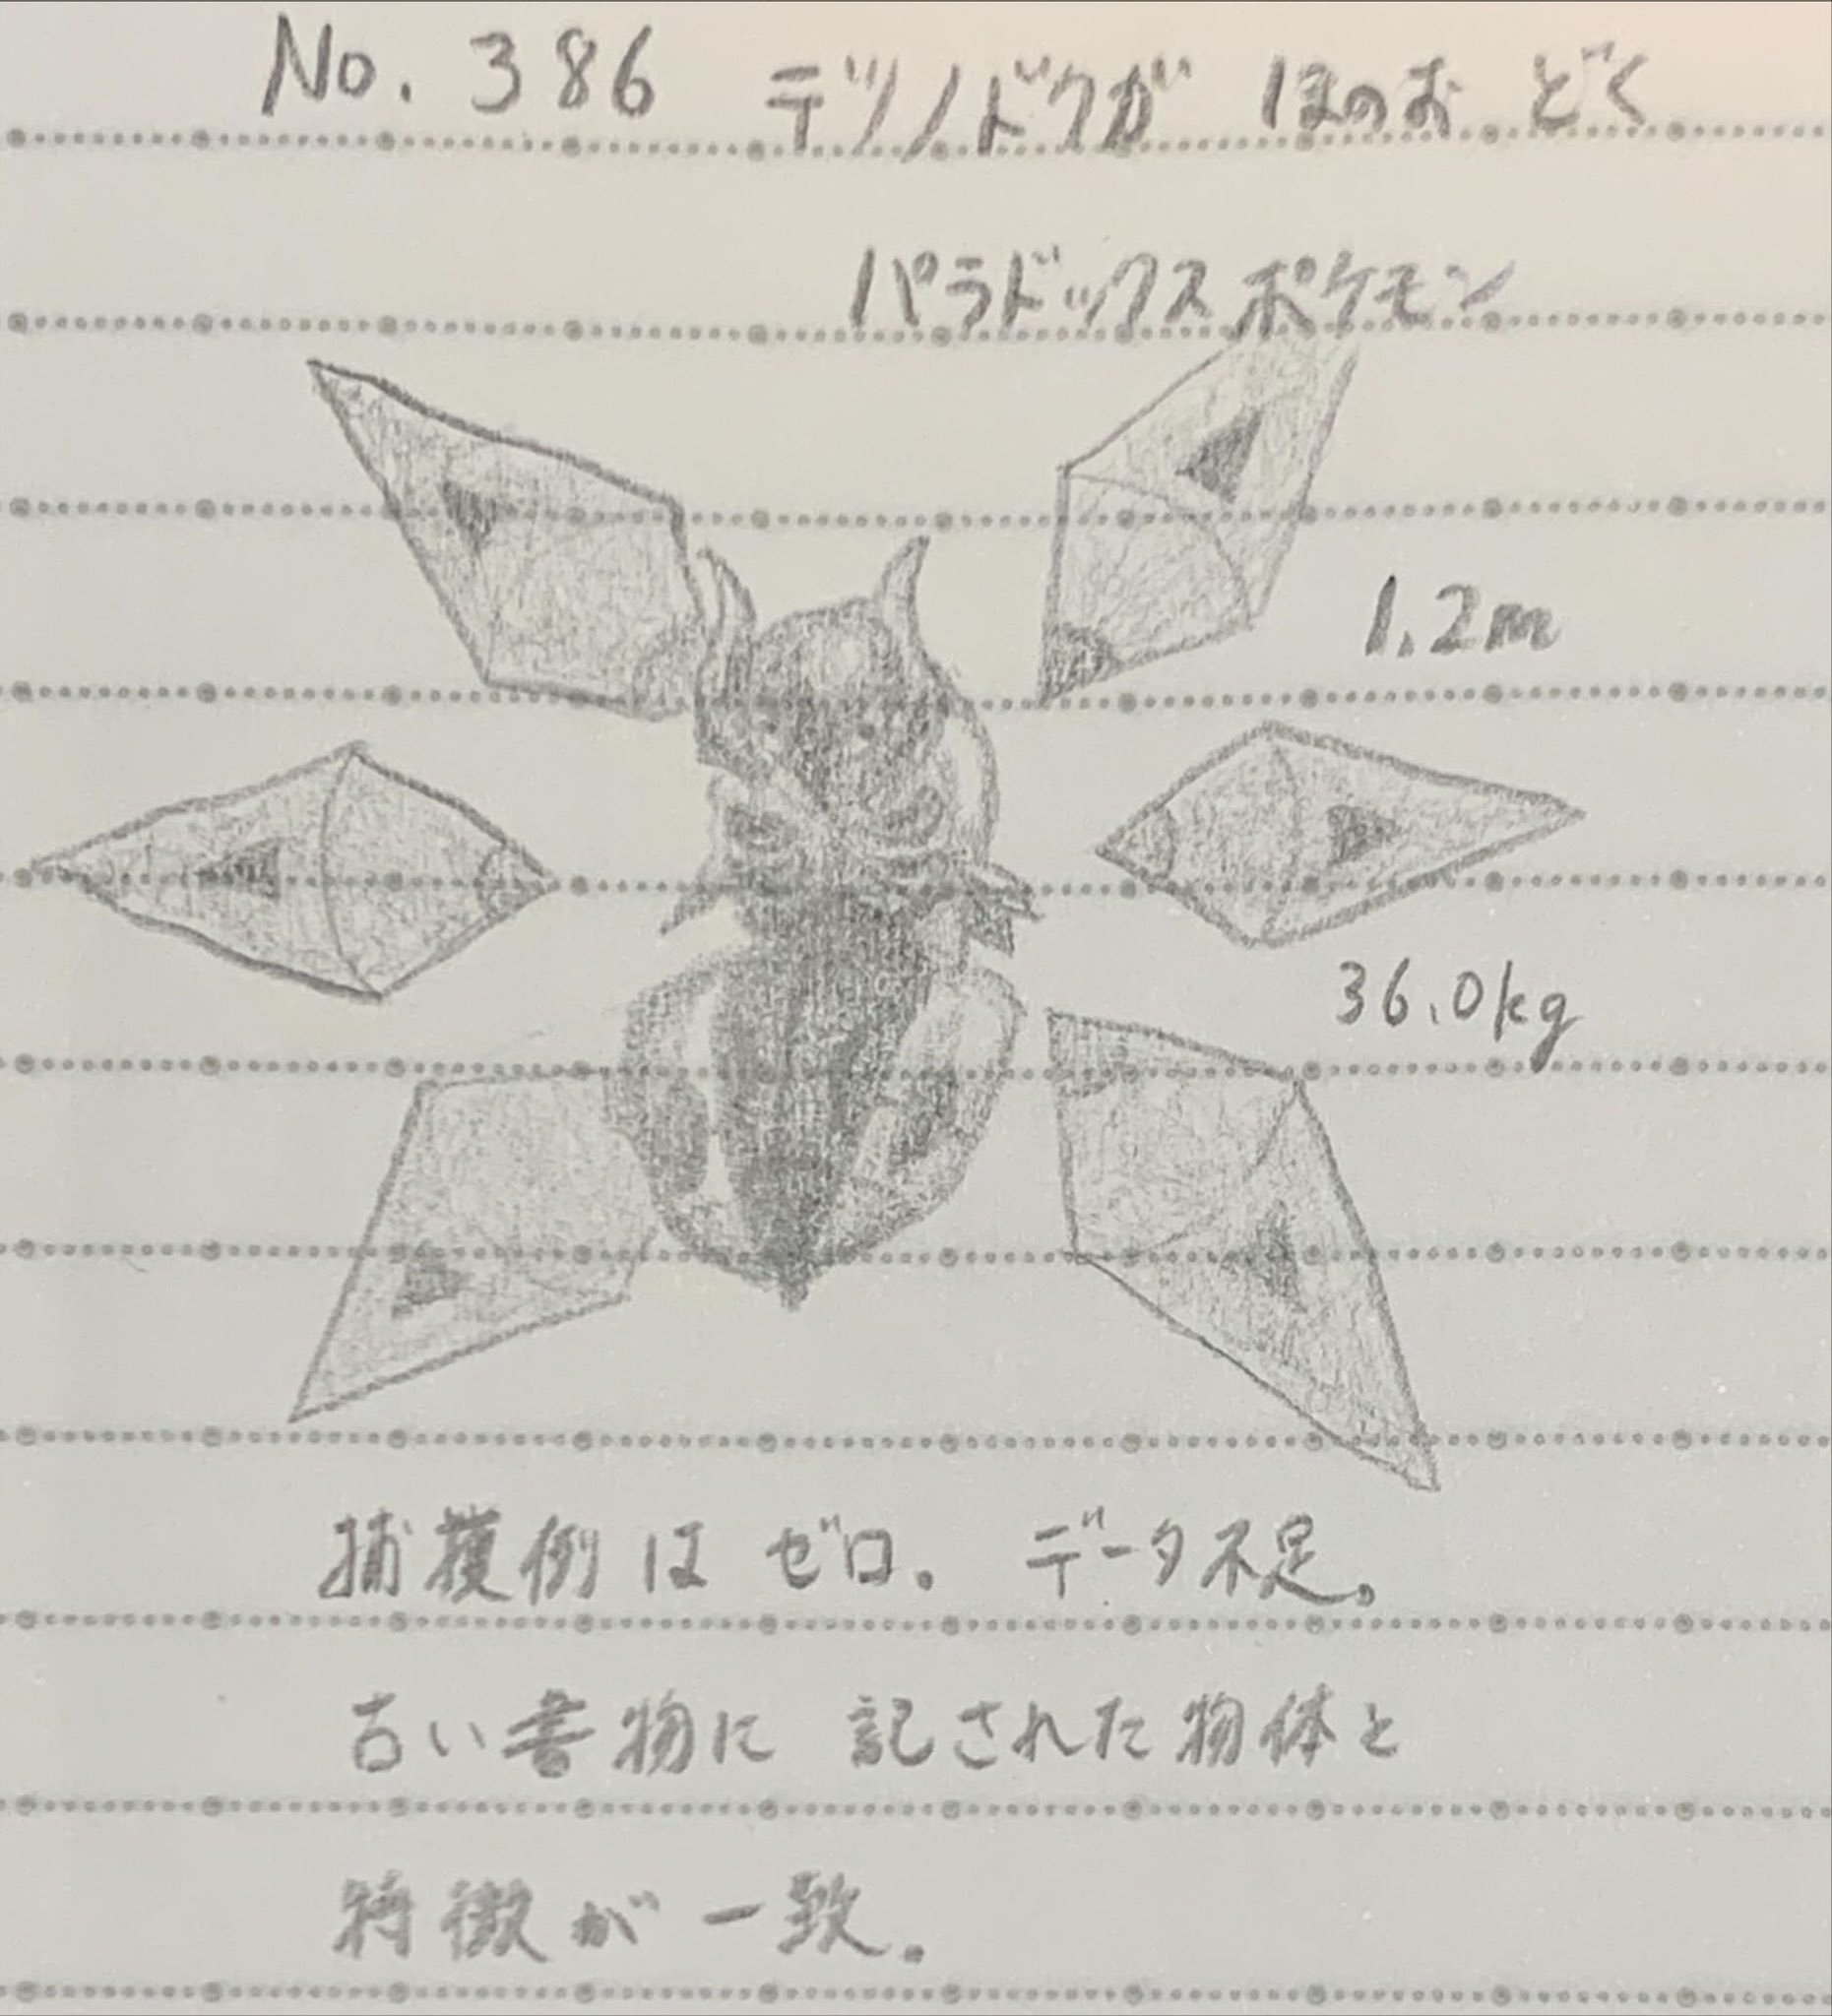 No. 386 テツノドクガ ほのお どく
パラドックスポケモン
1.2m
36.0kg
捕獲例は ゼロ。 データ不足。
古い書物に 記された物体と
特徴が一致。